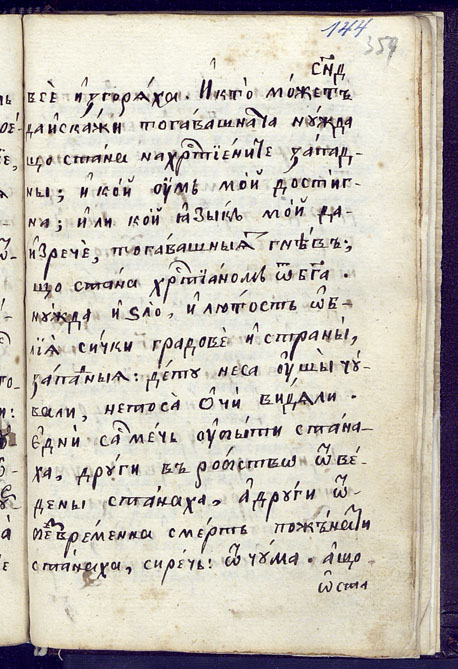 144
359
сн҃д
всѐ и҆згорѧ́ха . И҆ кто̀ мо́жетъ
да и҆скажѝ тогава́шната нꙋ́жда
що стана̀ на хрⷭ҇тїѐните за́пад-
ны ; и҆ ко́й ᲂу҆́мъ мо́й достѝг-
на ; и҆лѝ ко́й ѧ҆зы́къ мо́й да
и҆зречѐ , тогава́шныѧ гнѣ́въ ;
що стана̀ хрⷭ҇тїа́номъ ѿ бг҃а .
нꙋ́жда и҆ ѕло̀ , и҆ лю́тость ѡ҆б-
лїѧ̀ си́чки градовѐ и҆ страны̀ ,
за́падныѧ : де́тꙋ не са̀ ᲂу҆́шы чꙋ́-
вали , не то са̀ ѻ҆́чи видѧ́ли .
Е҆днѝ са̀ ме́чь ᲂу҆бы́ти ста́на-
ха , дрꙋ́ги въ ро́бство ѿве́-
дены ста́наха , а҆ дрꙋ́ги ѿ
невре́менна сме́рть пожъ́нати
ста́наха , си́речь : ѿ чꙋ́ма . а҆ що
ѡ҆ста